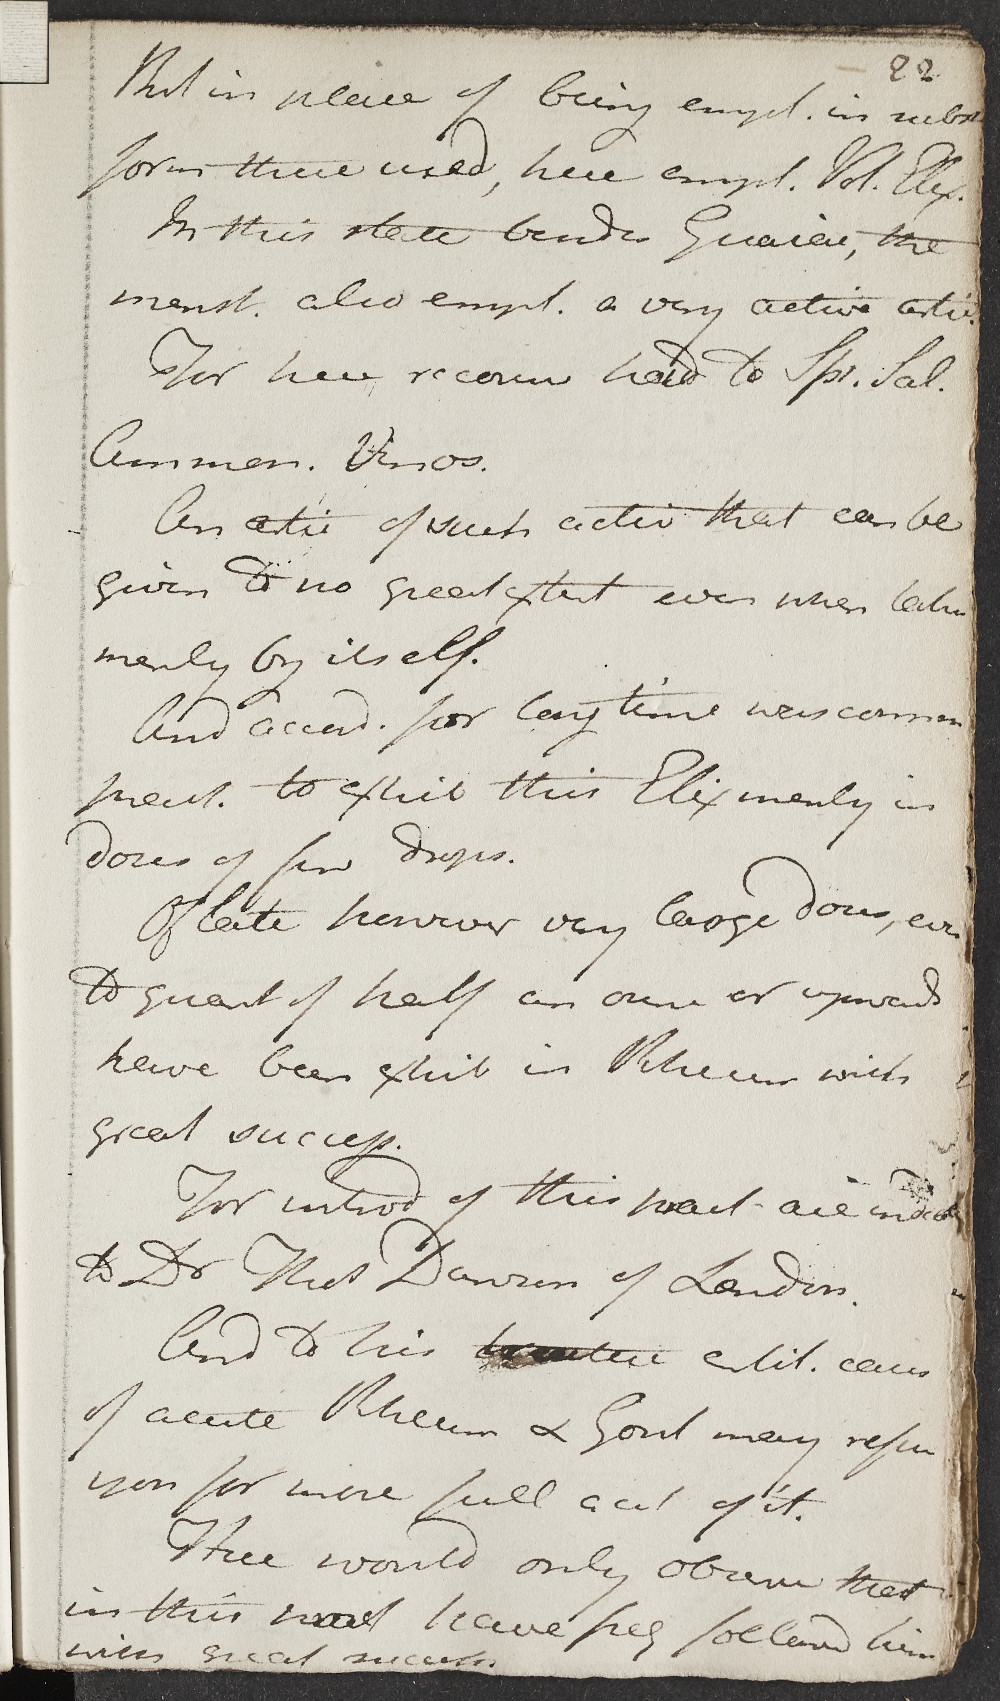 22
But in place of being empl. in subst
form there used, here empl. Vol. Elix.
In this state besides Guaiac, the
menst. also empl. a very active artic.
For here recours had to Spr. Sal.
Ammon. Vinos.
An artic of such activ that can be
given to no great extent even when taken
merely by itself.
And accord. for long time was common
pract. to exhib this Elix merely in
doses of few drops.
Of late however very large doses, even
to quant of half an ounce or upwards
have been exhib in Rheum with
great success.
For introd of this pract are indeb
to Dr Thos Dawson of London.
And to his entit. cases
of acute Rheum & Gout may refer
you for more full acct of it.
Here would only observe that
in this pract have freq followed him
with great success.